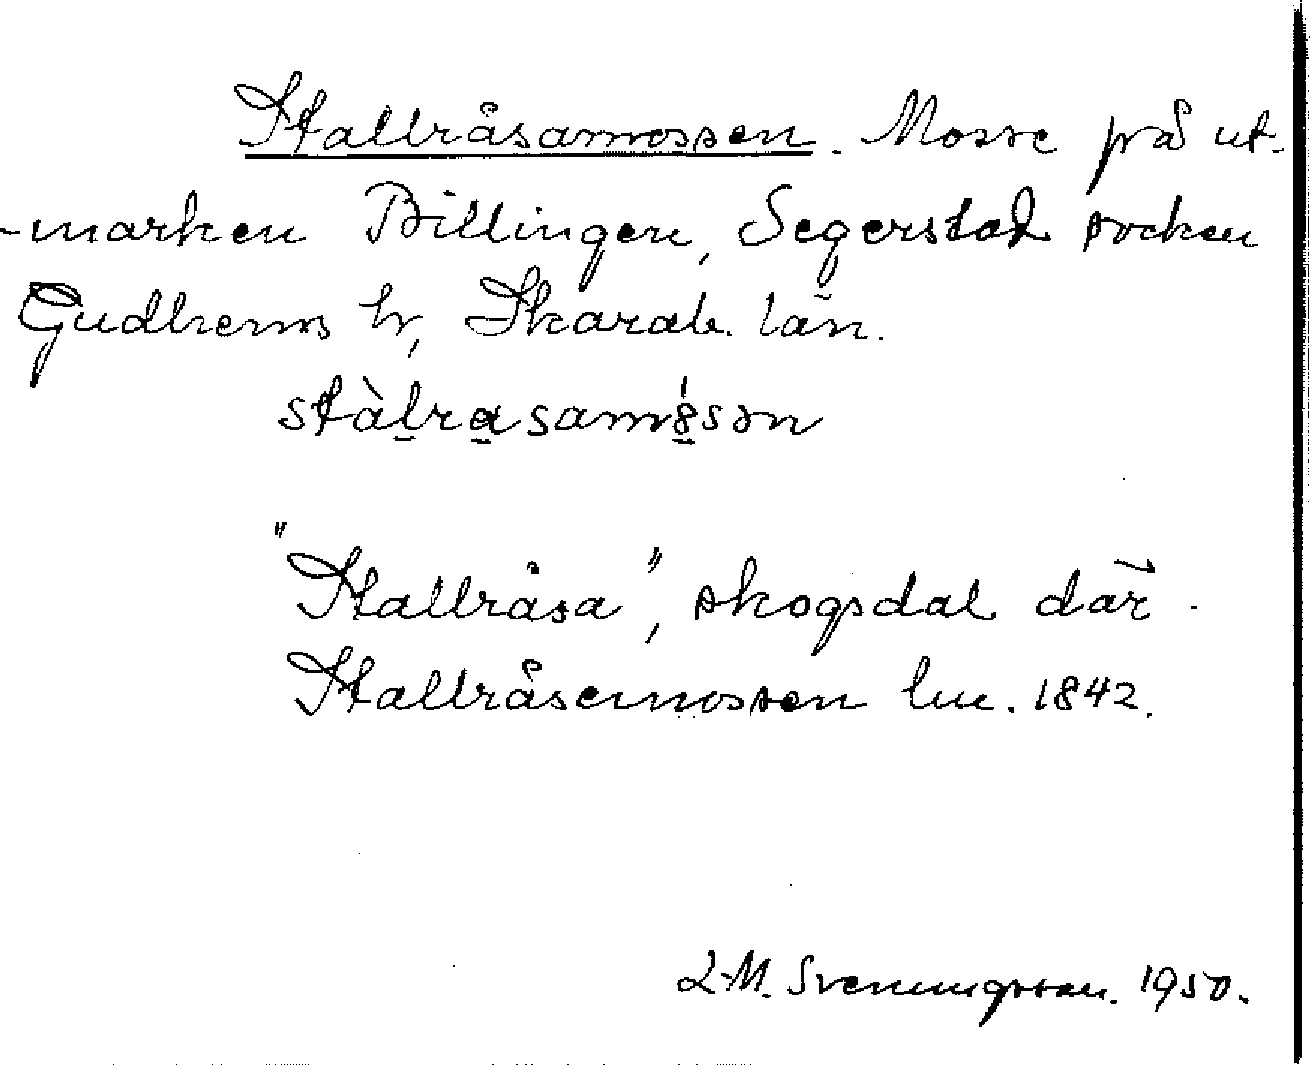 Stallråsamossen. Mosse på ut-
-marken Billingen, Segerstad socken
Gudhems hr, Skarab. län.
"Stallråsa", skogsdal där.
Stallråsemossen lm. 1842.
L-M. Svenungsson. 1950.